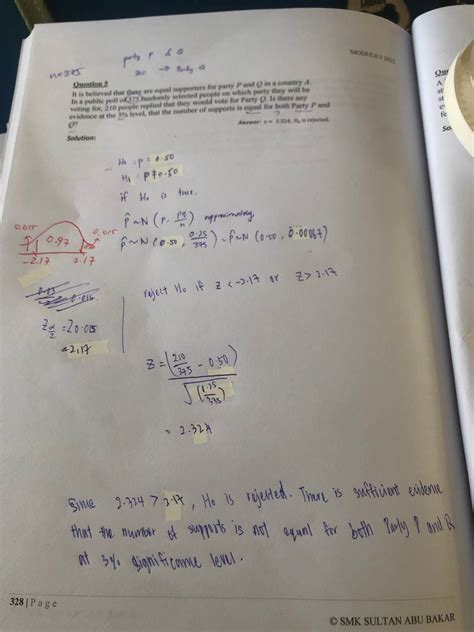 party P & Q
n=375
MODULE 1 2022
Question 5
It is believed that there are equal supporters for party P and Q in a country A.
In a public poll of 375 randomly selected people on which party they will be
voting for, 210 people replied that they would vote for Party Q. Is there any
evidence at the 3% level, that the number of supports is equal for both Party P and
Q?
Answer: z = 2.324, H₀ is rejected.
Solution:
H₀ : p = 0.50
H₁ : p ≠ 0.50
if H₀ is true.
p̂ ~ N (p, pq/n) approximately
p̂ ~ N (0.50, 0.25/375) = p̂ ~ N (0.50, 0.00067)
0.015 0.97 0.015
-2.17 2.17
reject H₀ if z < -2.17 or z > 2.17
Z α/2 = Z 0.015
= 2.17
Z = (210/375 - 0.50) / √(0.25/375)
= 2.324
Since 2.324 > 2.17, H₀ is rejected. There is sufficient evidence
that the number of supports is not equal for both Party P and Q
at 3% significance level.
328 | Page
© SMK SULTAN ABU BAKAR